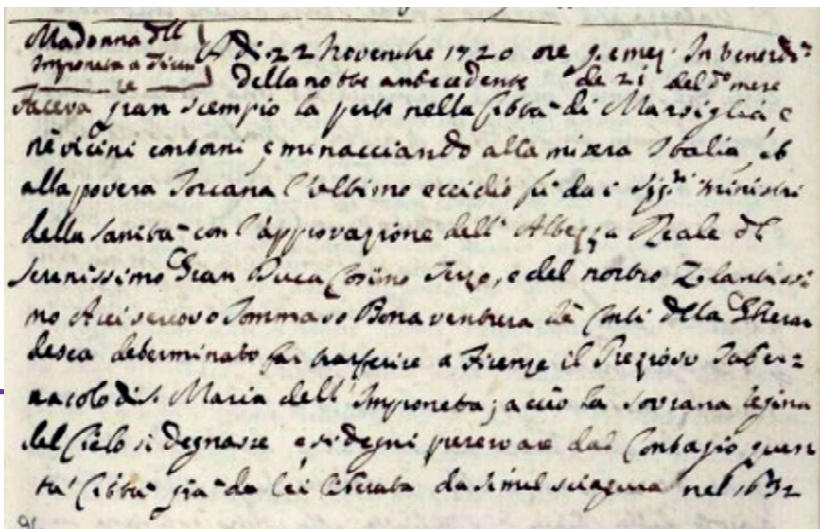 Madonna dell
Impruneta a Firen
ze
A di 22 Novembre 1720 ore 9. e mez. In venerdi
della notte antecedente de 21 del do mese
Faceva gran scempio la peste nella Citta di Marsiglia, e
ne vicini contorni, e minacciando alla misera Italia, et
alla povera Toscana l'ultimo eccidio fu da i Sigri Ministri
della Sanita con l'approvazione dell' Altezza Reale del
Serenissimo Gran Duca Cosimo Terzo, e del nostro Zelantissi
mo Arcivescovo Tommaso Bonaventura de Conti della Gherar
desca determinato far trasferire a Firenze il Prezioso Taber=
nacolo di S. Maria dell' Impruneta; accio la sovrana regina
del Cielo si degnasse e si degni preservare dal Contagio quen
ta' Citta gia da lei liberata da simil sciagura nel 1632